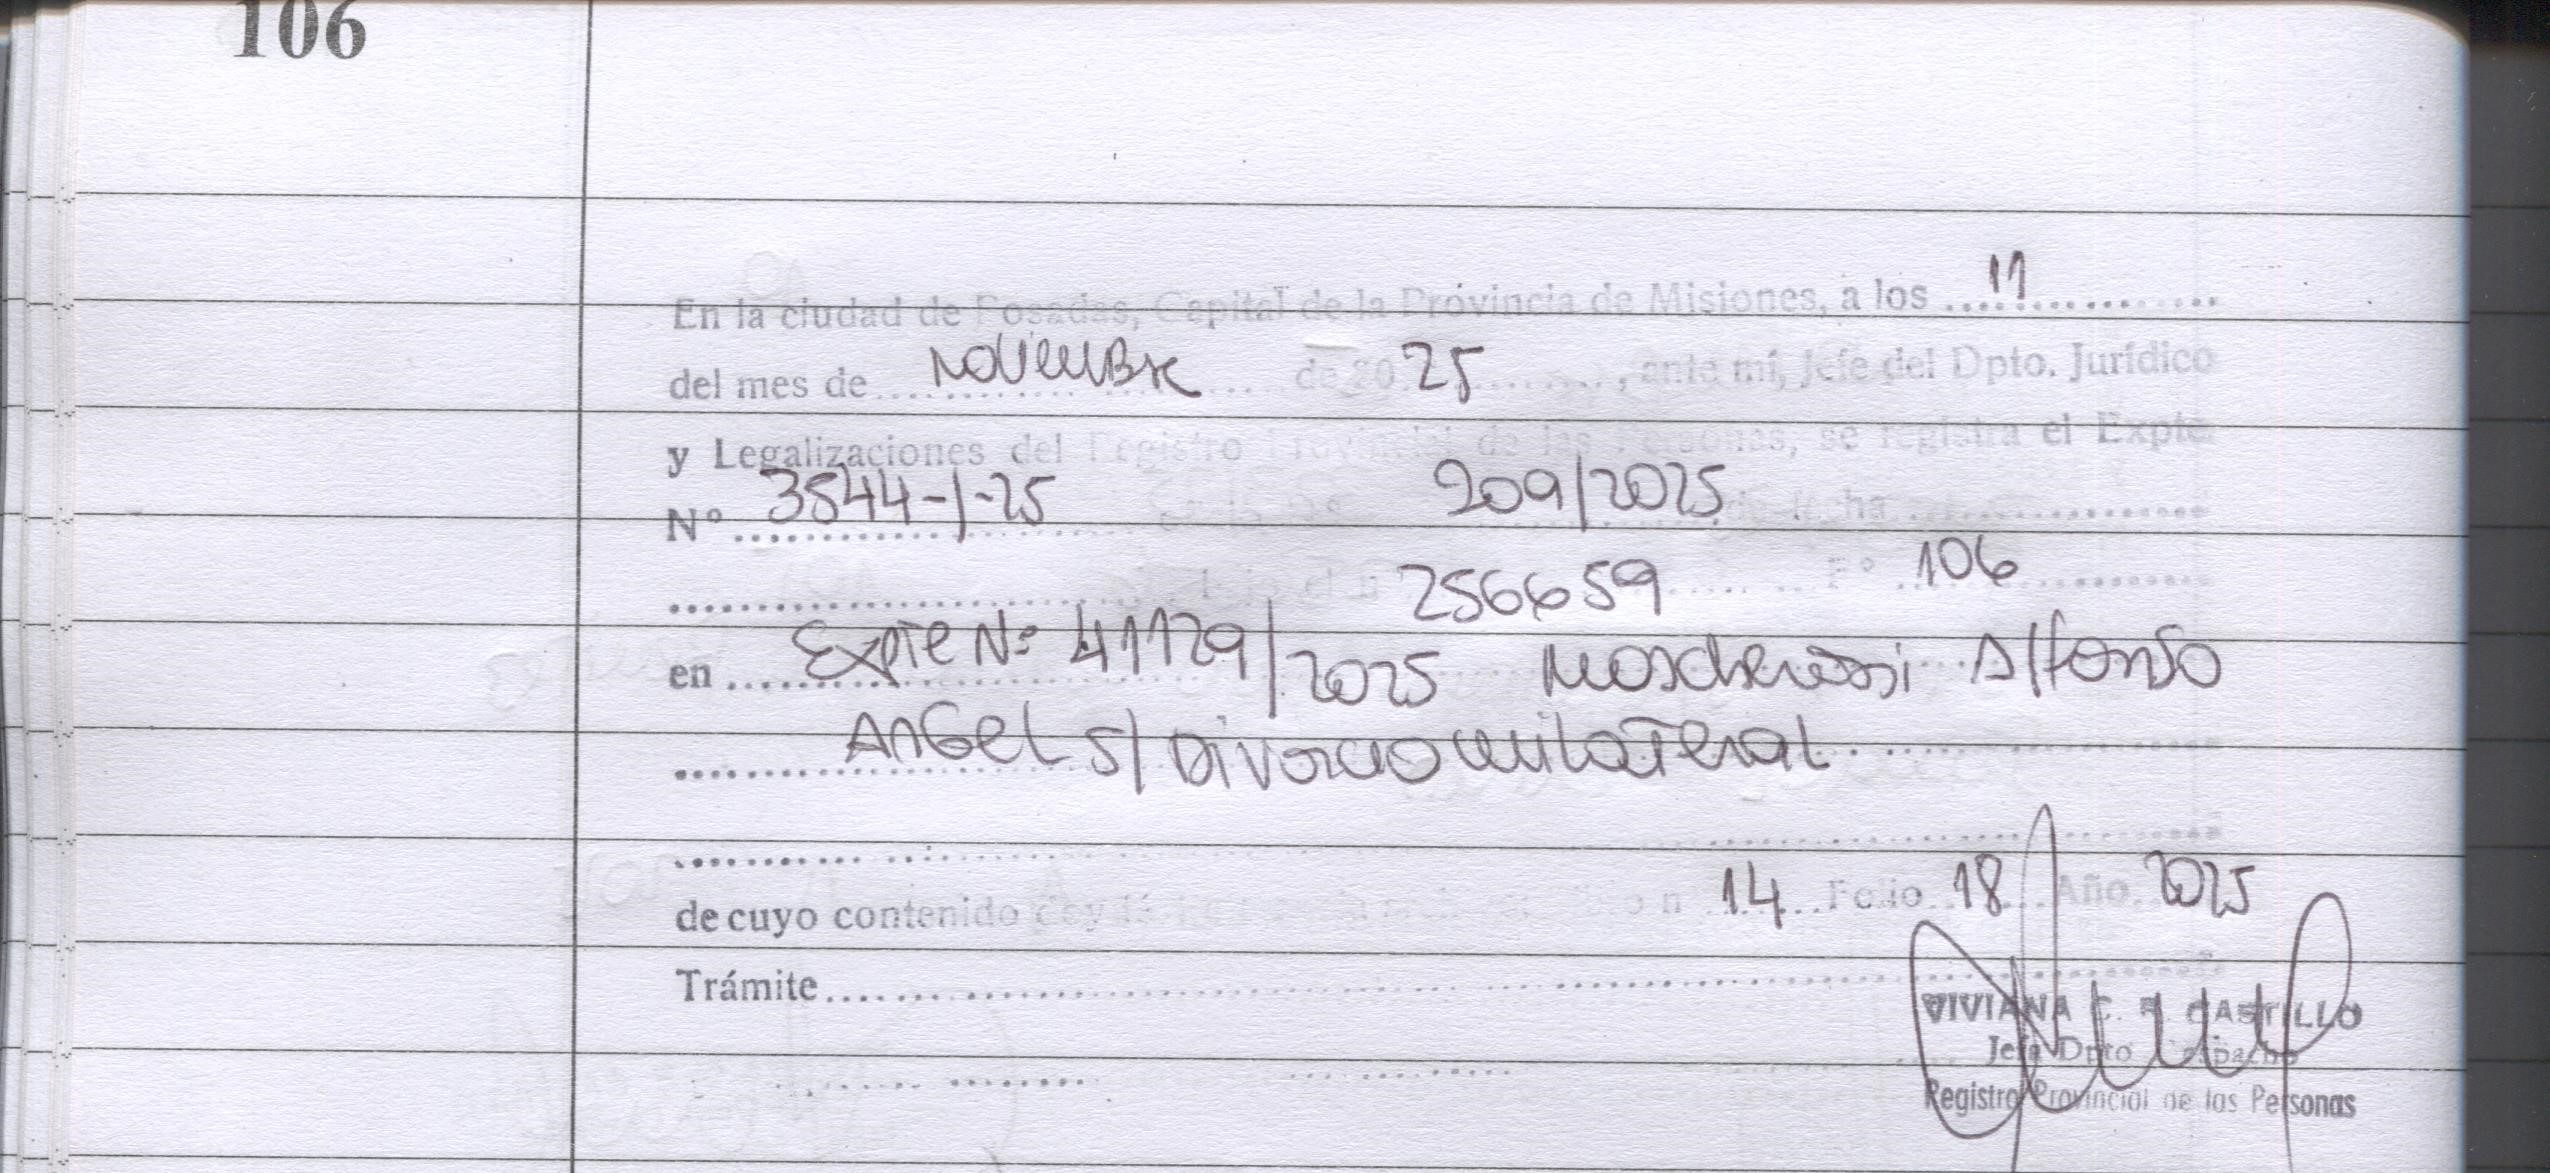 106
En la ciudad de Posadas, Capital de la Provincia de Misiones, a los 11
del mes de Noviembre de 2025, ante mí, Jefe del Dpto. Jurídico
y Legalizaciones del Registro Provincial de las Personas, se registra el Expte
Nº 3544-1-25 209/2025 de fecha
256659 Fº 106
en Expte Nº 41129/2025 Alfonso
Angel s/ Divorcio unilateral
de cuyo contenido doy 14 Folio 18 Año 2025
Trámite
VIVIANA C. R. CASTILLO
Jefa Dpto Despacho
Registro Provincial de las Personas